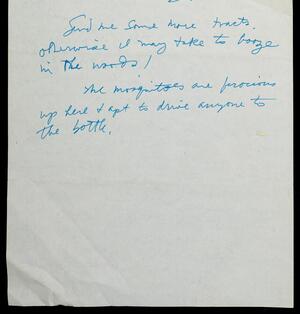 Send me some more tracts.
otherwise I may take to booze
in the woods!
The mosquitoes are ferocious
up here & apt to drive anyone to
the bottle.